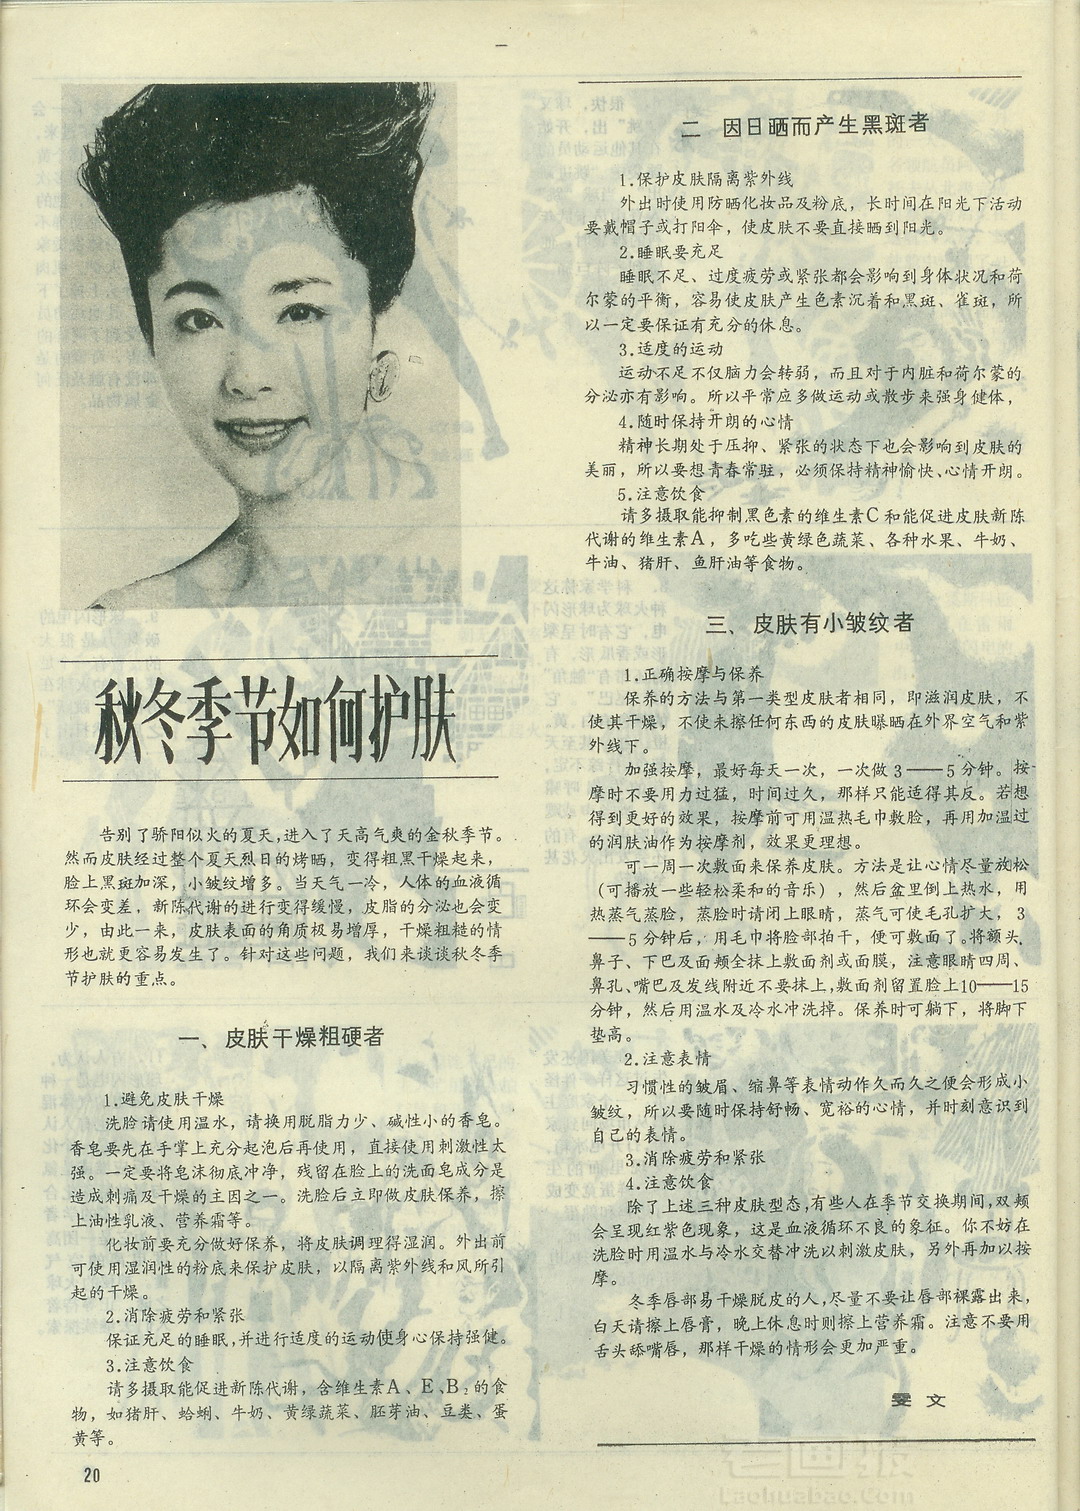 秋冬季节如何护肤
告别了骄阳似火的夏天,进入了天高气爽的金秋季节。
然而皮肤经过整个夏天烈日的烤晒，变得粗黑干燥起来，
脸上黑斑加深，小皱纹增多。当天气一冷，人体的血液循
环会变差，新陈代谢的进行变得缓慢，皮脂的分泌也会变
少，由此一来，皮肤表面的角质极易增厚，干燥粗糙的情
形也就更容易发生了。针对这些问题，我们来谈谈秋冬季
节护肤的重点。
一、皮肤干燥粗硬者
1.避免皮肤干燥
洗脸请使用温水，请换用脱脂力少、碱性小的香皂。
香皂要先在手掌上充分起泡后再使用，直接使用刺激性太
强。一定要将皂沫彻底冲净，残留在脸上的洗面皂成分是
造成刺痛及干燥的主因之一。洗脸后立即做皮肤保养，擦
上油性乳液、营养霜等。
化妆前要充分做好保养，将皮肤调理得湿润。外出前
可使用湿润性的粉底来保护皮肤，以隔离紫外线和风所引
起的干燥。
2.消除疲劳和紧张
保证充足的睡眠,并进行适度的运动使身心保持强健。
3.注意饮食
请多摄取能促进新陈代谢，含维生素A、E、B₂的食
物，如猪肝、蛤蜊、牛奶、黄绿蔬菜、胚芽油、豆类、蛋
黄等。
20
二 因日晒而产生黑斑者
1.保护皮肤隔离紫外线
外出时使用防晒化妆品及粉底，长时间在阳光下活动
要戴帽子或打阳伞，使皮肤不要直接晒到阳光。
2.睡眠要充足
睡眠不足、过度疲劳或紧张都会影响到身体状况和荷
尔蒙的平衡，容易使皮肤产生色素沉着和黑斑、雀斑，所
以一定要保证有充分的休息。
3.适度的运动
运动不足不仅脑力会转弱，而且对于内脏和荷尔蒙的
分泌亦有影响。所以平常应多做运动或散步来强身健体，
4.随时保持开朗的心情
精神长期处于压抑、紧张的状态下也会影响到皮肤的
美丽，所以要想青春常驻，必须保持精神愉快、心情开朗。
5.注意饮食
请多摄取能抑制黑色素的维生素C和能促进皮肤新陈
代谢的维生素A，多吃些黄绿色蔬菜、各种水果、牛奶、
牛油、猪肝、鱼肝油等食物。
三、皮肤有小皱纹者
1.正确按摩与保养
保养的方法与第一类型皮肤者相同，即滋润皮肤，不
使其干燥，不使未擦任何东西的皮肤曝晒在外界空气和紫
外线下。
加强按摩，最好每天一次，一次做3——5分钟。按
摩时不要用力过猛，时间过久，那样只能适得其反。若想
得到更好的效果，按摩前可用温热毛巾敷脸，再用加温过
的润肤油作为按摩剂，效果更理想。
可一周一次敷面来保养皮肤。方法是让心情尽量放松
（可播放一些轻松柔和的音乐），然后盆里倒上热水，用
热蒸气蒸脸，蒸脸时请闭上眼睛，蒸气可使毛孔扩大，3
——5分钟后，用毛巾将脸部拍干，便可敷面了。将额头、
鼻子、下巴及面颊全抹上敷面剂或面膜，注意眼睛四周、
鼻孔、嘴巴及发线附近不要抹上,敷面剂留置脸上10——15
分钟，然后用温水及冷水冲洗掉。保养时可躺下，将脚下
垫高。
2.注意表情
习惯性的皱眉、缩鼻等表情动作久而久之便会形成小
皱纹，所以要随时保持舒畅、宽裕的心情，并时刻意识到
自己的表情。
3.消除疲劳和紧张
4.注意饮食
除了上述三种皮肤型态,有些人在季节交换期间,双颊
会呈现红紫色现象，这是血液循环不良的象征。你不妨在
洗脸时用温水与冷水交替冲洗以刺激皮肤，另外再加以按
摩。
冬季唇部易干燥脱皮的人,尽量不要让唇部裸露出来，
白天请擦上唇膏，晚上休息时则擦上营养霜。注意不要用
舌头舔嘴唇，那样干燥的情形会更加严重。
雯 文